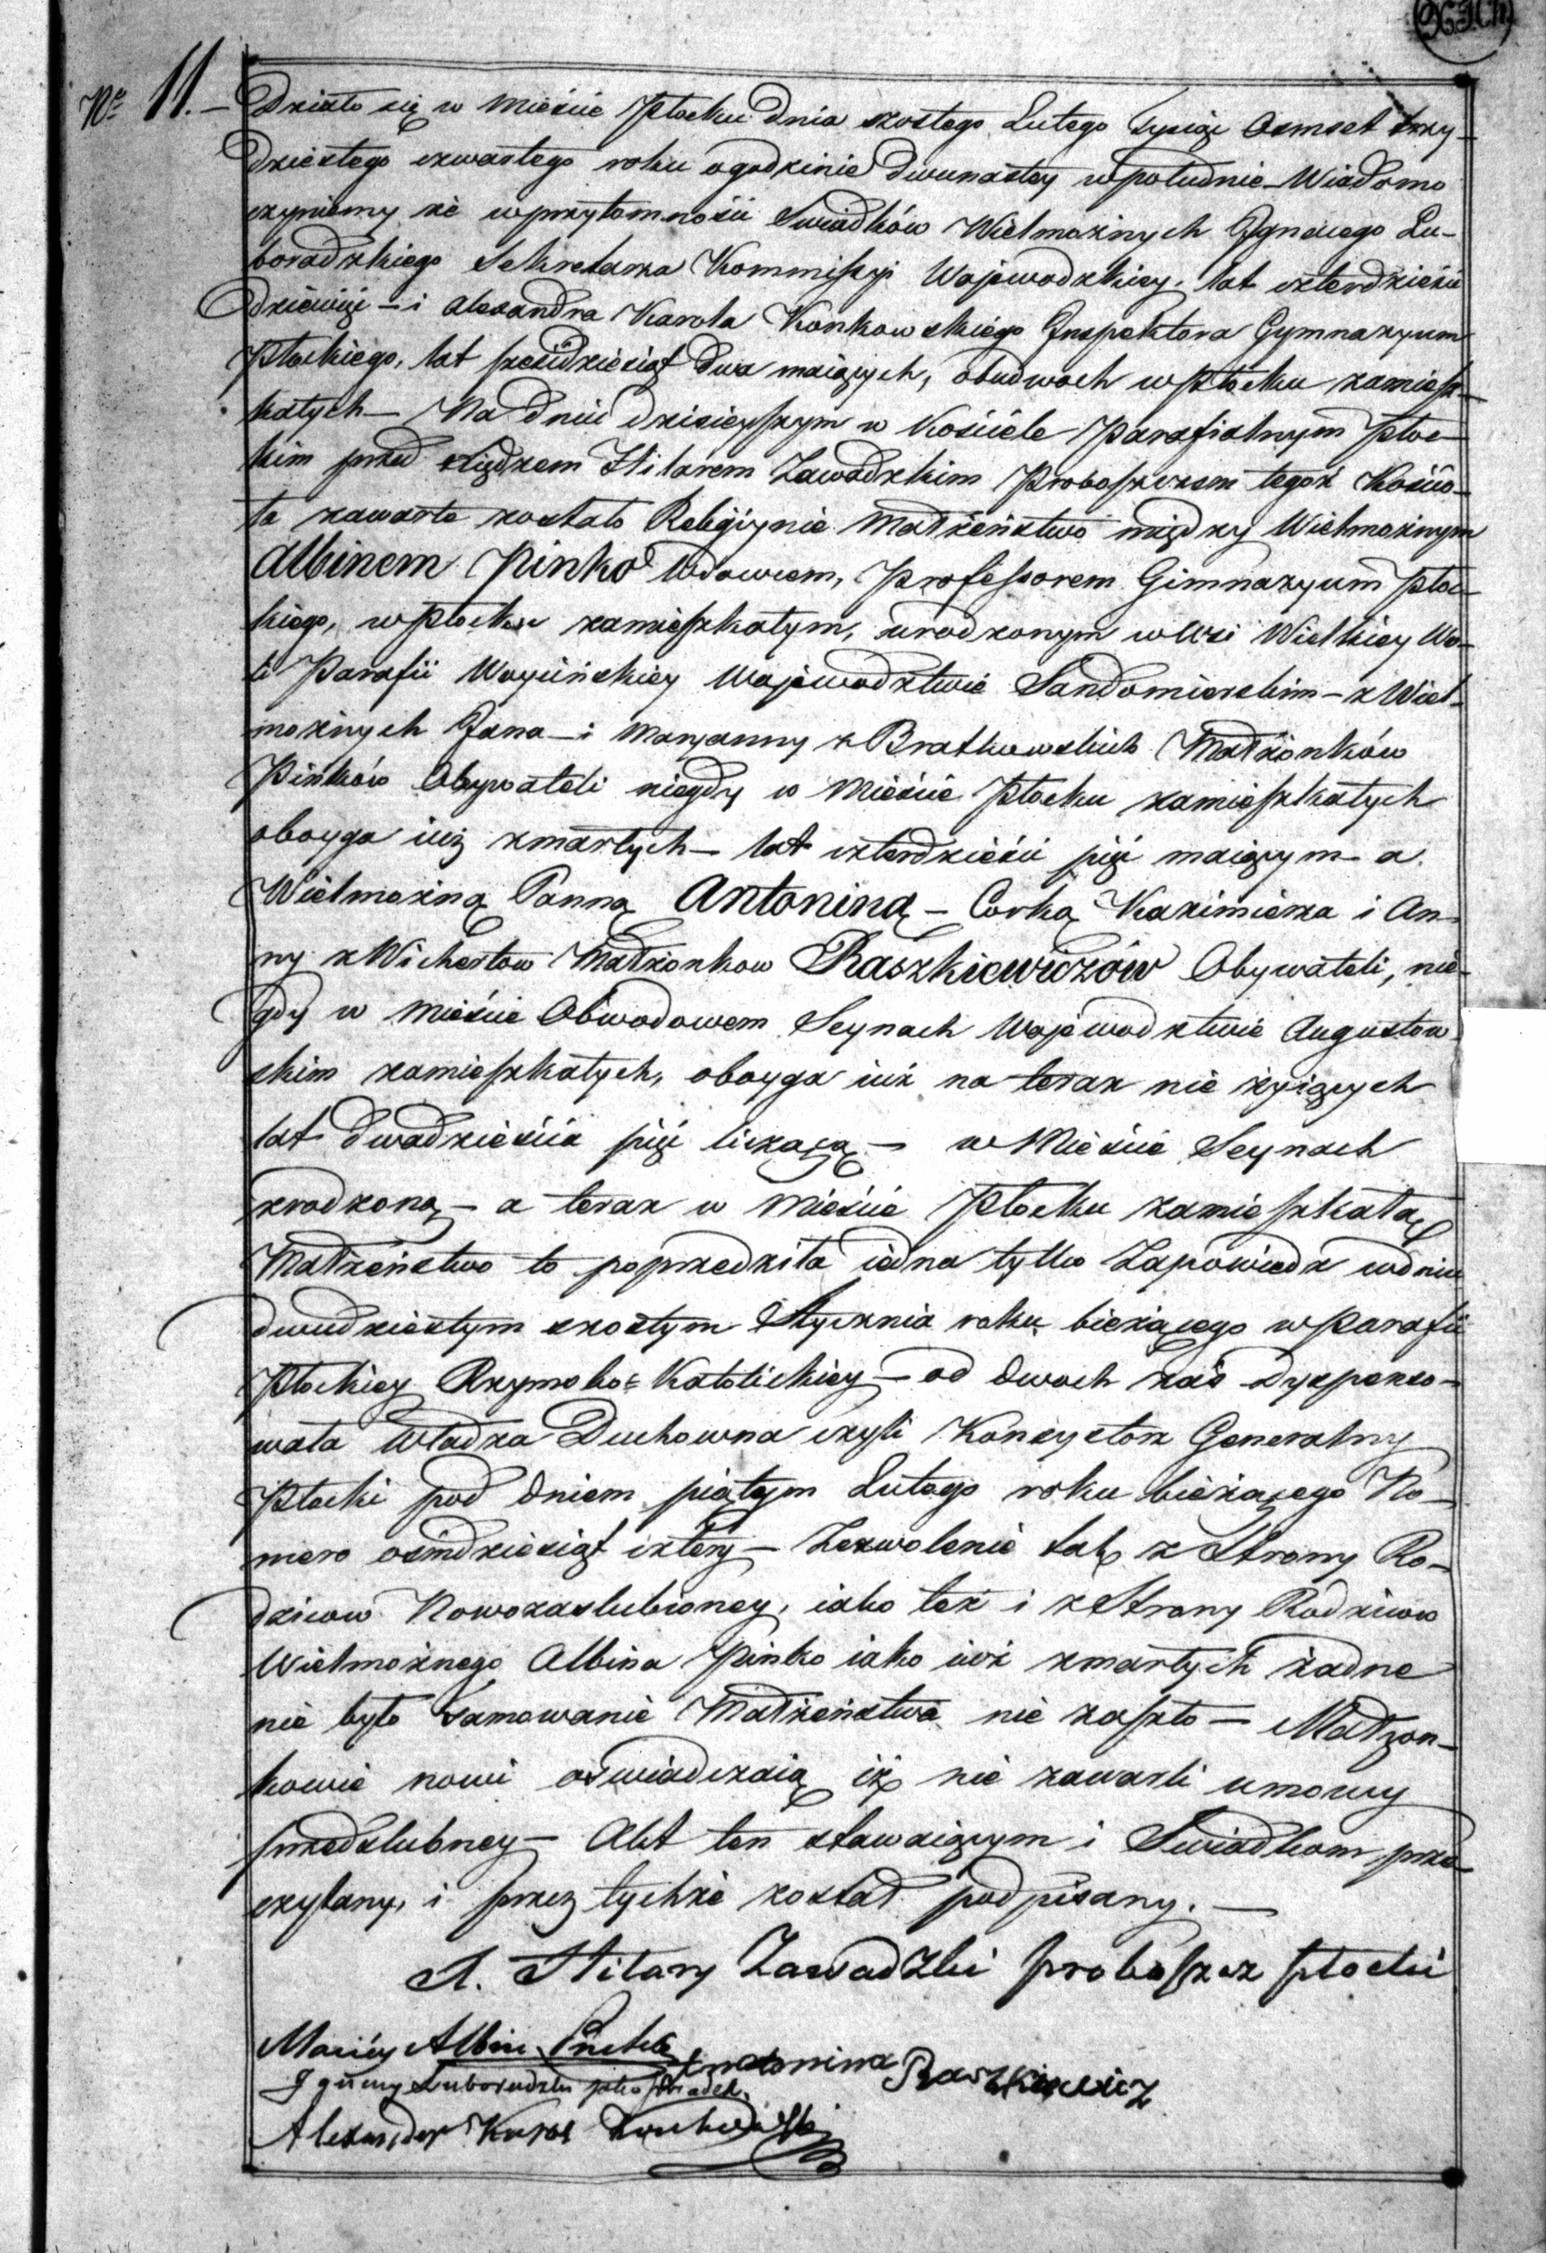 Nº 11. — Działo się w Mieście Płocku Dnia szostego Lutego Tysiąc Osmset trzy-
dziestego czwartego roku o godzinie Dwunastey w południe — Wiadomo
czyniemy że w przytomności Swiadków Wielmożnych Jgnacego Lu-
boradzkiego Sekretarza Kommissyi Wojewodzkiey, lat czterdzieści
Dziewięć — i Alexandra Karola Konkowskiego Jnspektora Gymnazyum
Płockiego, lat sześćdziesiąt Dwa maiących, obudwoch w Płocku zamiesz-
kałych — Na Dniu dzisieyszym w Kościele Parafialnym Płoc-
kim przed Xiędzem Hilarem Zawadzkim Proboszczem tegoż Kościo-
ła zawarte zostało Religiynie Małżeństwo między Wielmożnym
Albinem Pinko Wdowcem, Professorem Gimnazyum Płoc-
kiego, w Płocku zamieszkałym, urodzonym w Wsi Wielkiey Wo-
li Parafii Woycińskiey Wojewodztwie Sandomierskim — z Wiel-
możnych Jana — i Maryanny z Bratkowskich Małżonków
Pinków Obywateli niegdy w Mieście Płocku zamieszkałych
oboyga iuż zmarłych — lat czterdzieści pięć maiącym — a
Wielmożną Panną Antoniną — Corką Kazimierza i An-
ny z Wichertow Małżonkow Raszkiewiczów Obywateli, nie-
gdy w Mieście Obwodowem Seynach Wojewodztwie Augustow
skim zamieszkałych, oboyga iuż na teraz nie żyiących
lat dwadzieścia pięć liczącą — w Mieście Seynach
zrodzoną — a teraz w Mieście Płocku zamieszkałą
Małżeństwo to poprzedziła iedna tylko Zapowiedz w dniu
dwudziestym szostym Stycznia roku bieżącego w Parafii
Płockiey Rzymsko-Katolickiey — od dwoch zaś Dyspenso-
wała Władza Duchowna czyli Konsystorz Generalny
Płocki pod Dniem piątym Lutego roku bieżącego No-
mero ośmdziesiąt cztery — Zezwolenie tak z Strony Ro-
dziców Nowozaslubioney, iako też i z Strony Rodziców
Wielmożnego Albina Pinko iako iuż zmarłych żadne
nie było Tamowanie Małżeństwa nie zaszło — Małżon-
kowie nowi oświadczaią iż nie zawarli umowy
przedslubney — Akt ten stawaiącym i Swiadkom prze
czytany, i przez tychże został podpisany. —
X. Hilary Zawadzki proboszcz płocki
Maciey Albin Pinko Antonina Raszkiewicz
Jgnacy Luboradzki jako świadek.
Alexander Karol Konkowski